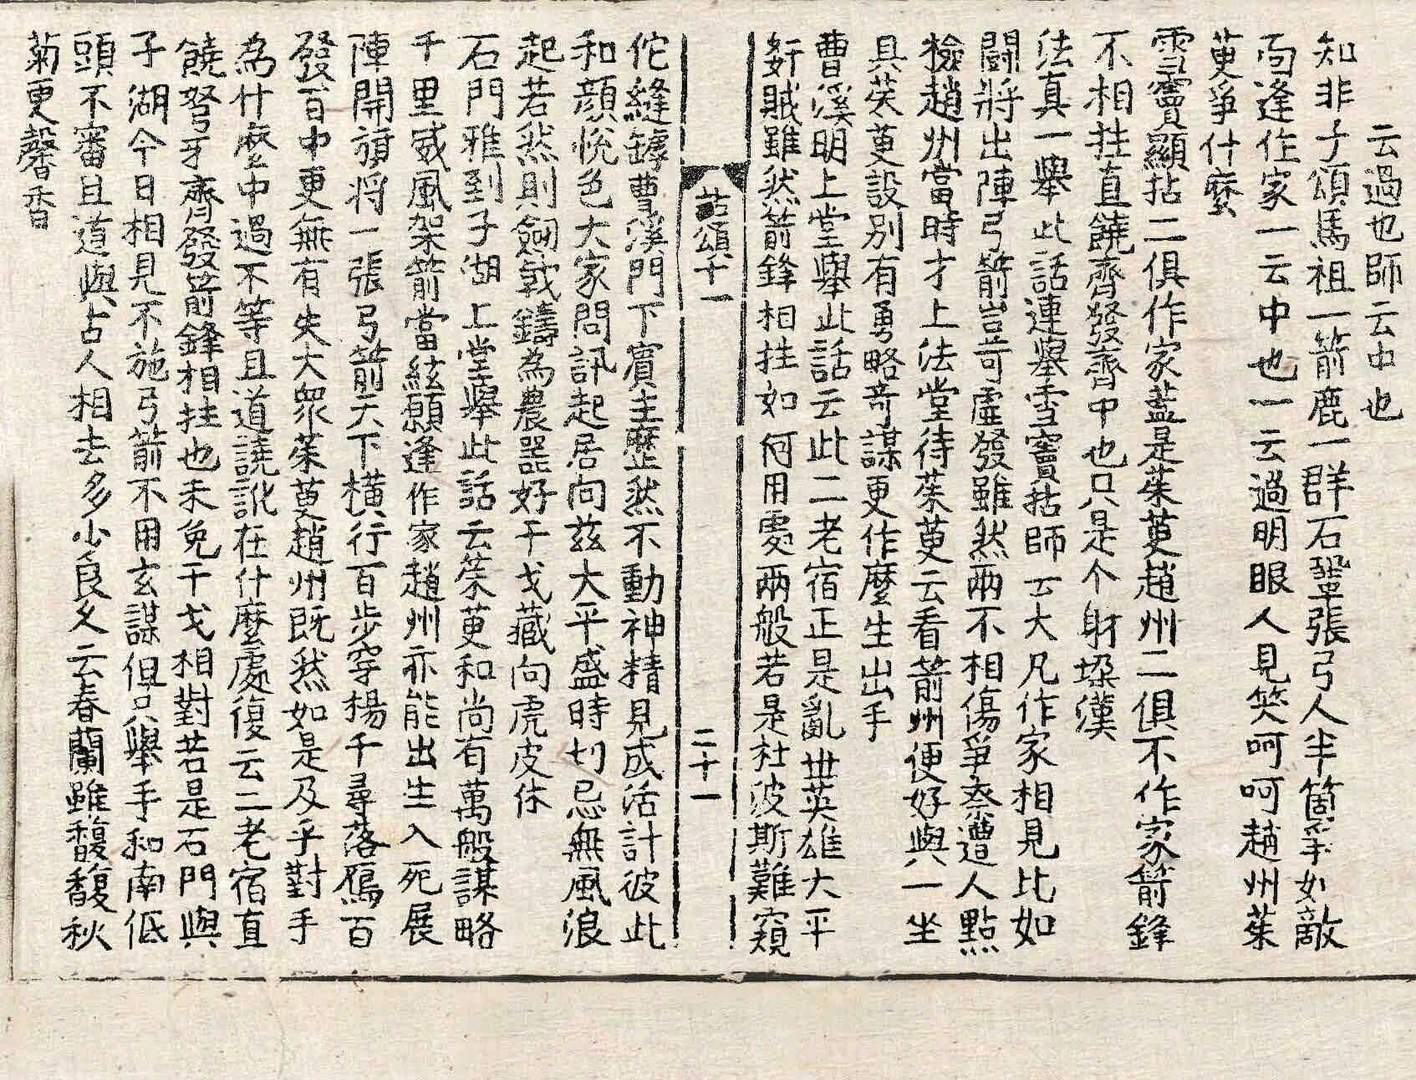 云過也師云中也
知非子頌馬祖一箭鹿一群石鞏張弓人半箇爭如敵
面逢作家一云中也一云過明眼人見笑呵呵趙州茱
萸爭什麼
雪竇顯拈二俱作家蓋是茱萸趙州二俱不作家箭鋒
不相拄直饒齊發齊中也只是个射垛漢
法真一擧此話連擧雪竇拈師云大凡作家相見比如
鬪將出陣弓箭豈可虛發雖然兩不相傷爭奈遭人點
檢趙州當時才上法堂待茱萸云看箭州便好與一坐
具茱萸設別有勇略奇謀更作麼生出手
曹溪明上堂擧此話云此二老宿正是亂世英雄大平
姧賊雖然箭鋒相拄如何用處兩般若是杜波斯難窺
拈頌十一
二十一
佗縫罅曹溪門下賓主歷然不動神精見成活計彼此
和顔悅色大家問訊起居向茲大平盛時切忌無風浪
起若然則劒戟鑄為農器好干戈藏向虎皮休
石門雅到子湖上堂擧此話云茱萸和尚有萬般謀略
千里威風架箭當絃願逢作家趙州亦能出生入死展
陣開旗将一張弓箭天下橫行百步穿楊千尋落鴈百
發百中更無有失大衆茱萸趙州既然如是及乎對手
為什麼中過不等且道譊訛在什麼處復云二老宿直
饒弩牙齊發箭鋒相拄也未免干戈相對若是石門與
子湖今日相見不施弓箭不用玄謀但只擧手和南低
頭不審且道與古人相去多少良久云春蘭雖馥馥秋
菊更馨香